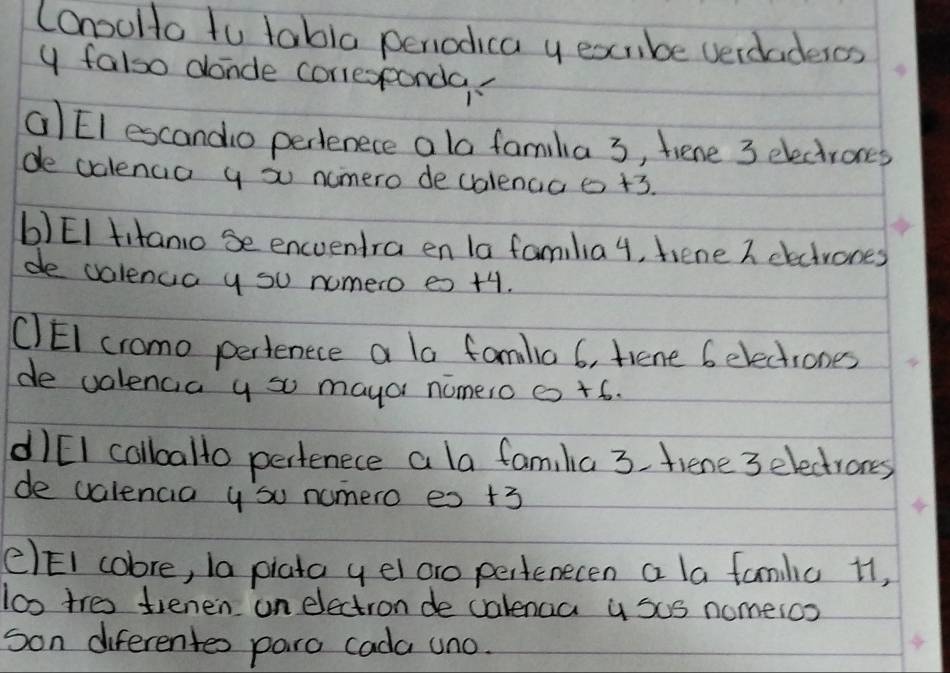 Consulta tu tabla periodica y escribe verdaderos
y falso dónde corresponda:
a) El escandio pertenece a la familia 3, tiene 3 electrones
de valencia y su número de valencia es +3.
b) El titanio se encuentra en la familia 4, tiene 2 electrones
de valencia y su numero es +4.
C) El cromo pertenece a la familia 6, tiene 6 electrones
de valencia y su mayor número es +6.
d) El colbalto pertenece a la familia 3- tiene 3 electrones
de valencia y su número es +3
e) El cobre, la plata y el oro pertenecen a la familia 11,
los tres tienen un electron de valencia y sus numeros
son diferentes para cada uno.